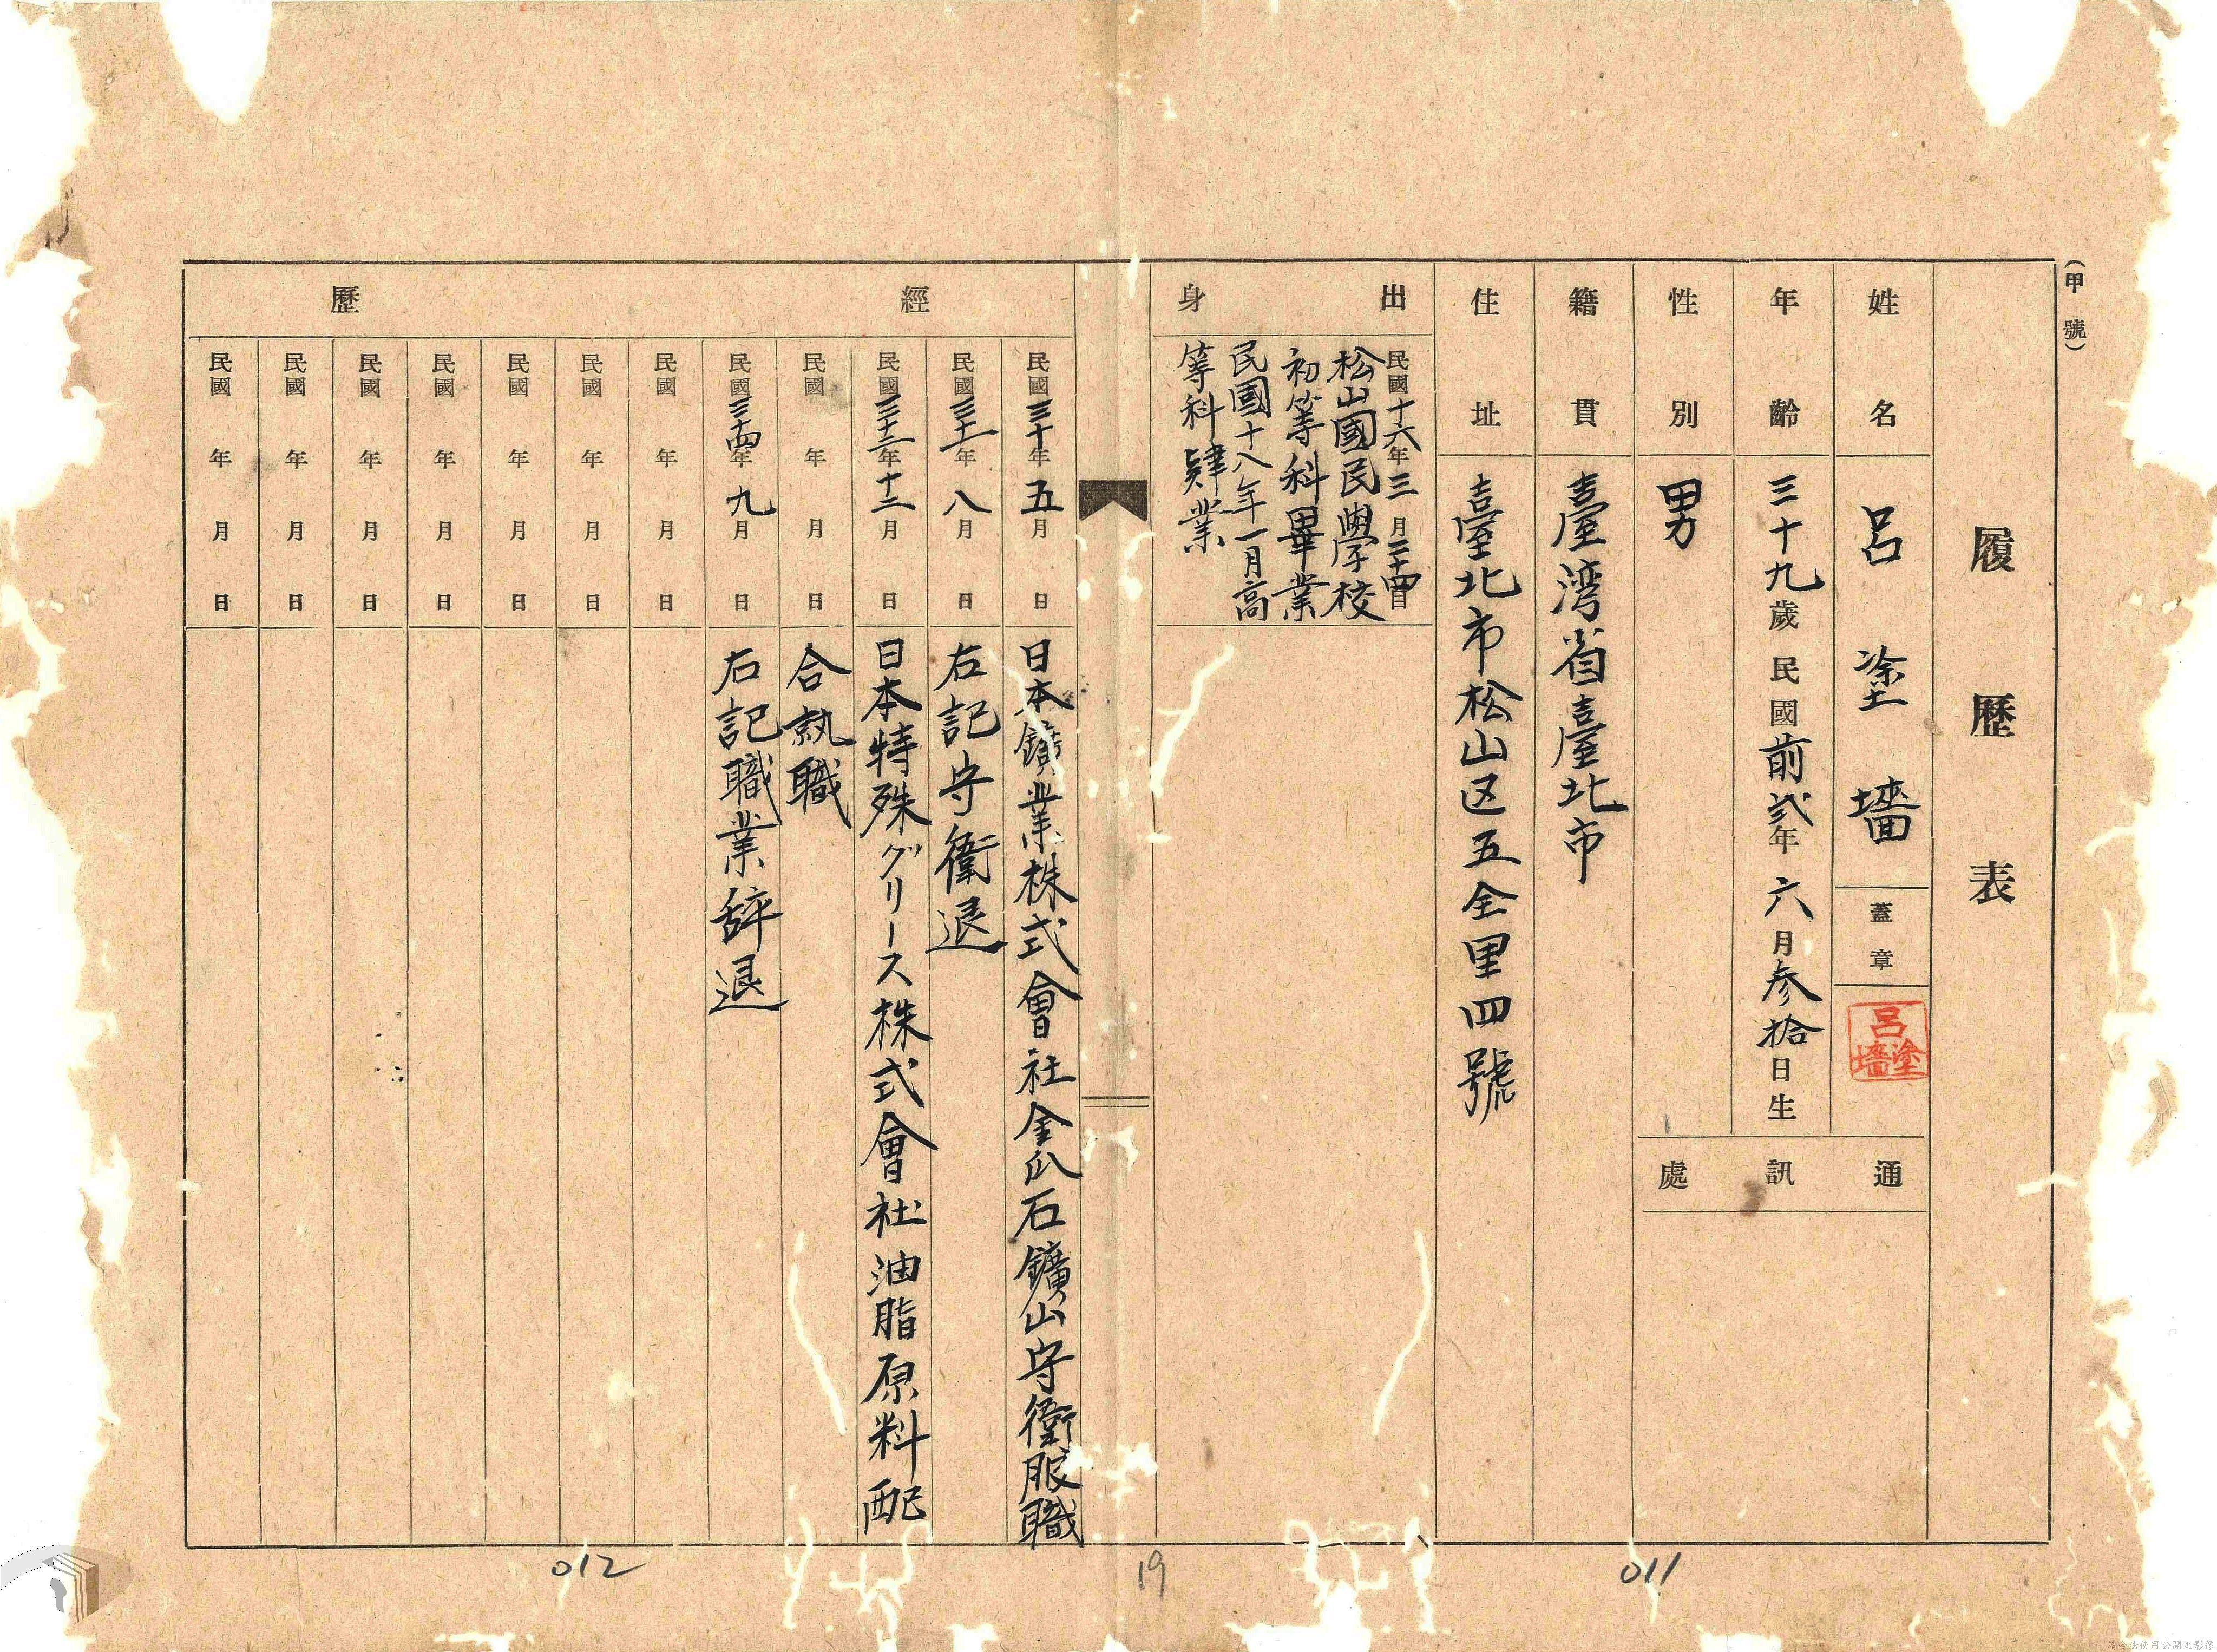 (甲號)
履歷表
姓名 呂塗墻 蓋章
呂塗墻
年齡 三十九歲 民國前弍年六月参拾日生
性別 男
通訊處
籍貫 臺湾省臺北市
住址 臺北市松山区五全里四號
出身
民國十六年三月二十四日
松山國民學校
初等科畢業
民國十八年一月高
等科肄業
經歷
民國三十年五月日 日本鑛業株式會社金瓜石鑛山守衛服職
民國三十一年八月日 右記守衛退
民國三十二年十二月日 日本特殊グリース株式會社油脂原料配
民國年月日 合執職
民國三十四年九月日 右記職業辞退
民國年月日
民國年月日
民國年月日
民國年月日
民國年月日
民國年月日
民國年月日
011
19
012
請合法使用公開之影像